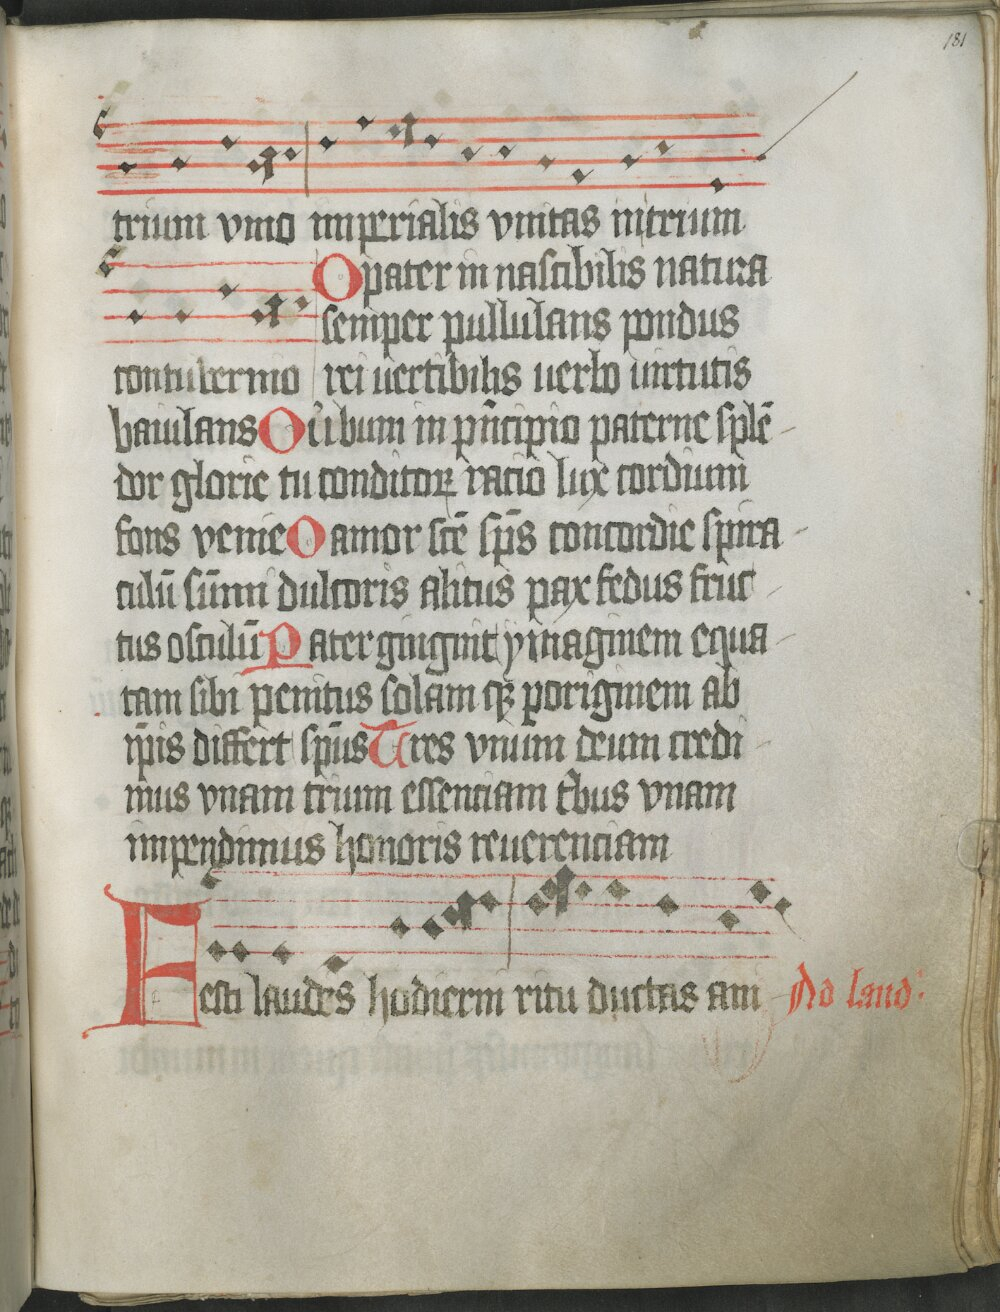 181
trium vmo imperialis vnitas in trium
O pater in nascibilis natura
semper pullulans pondus
contubernio rei uertibilis uerbo uirtutis
baiulans O ūbum in pncipio paterne splē
dor glorie tu conditoꝝ racio lux cordium
fons venie O amor scē sp̄s concordie spira
culū sūmi dulcoris alitus pax fedus fruc
tus osculū Pater gingnit ymaginem equa
tam sibi penitus solam qꝫ poriginem ab
ip̄is differt sp̄us Tres vnum deum credi
mus vnam trium essenciam t̄bus vnam
impendimus honoris reuerenciam
Festi laudes hodierni ritu ductas ani Ad laud